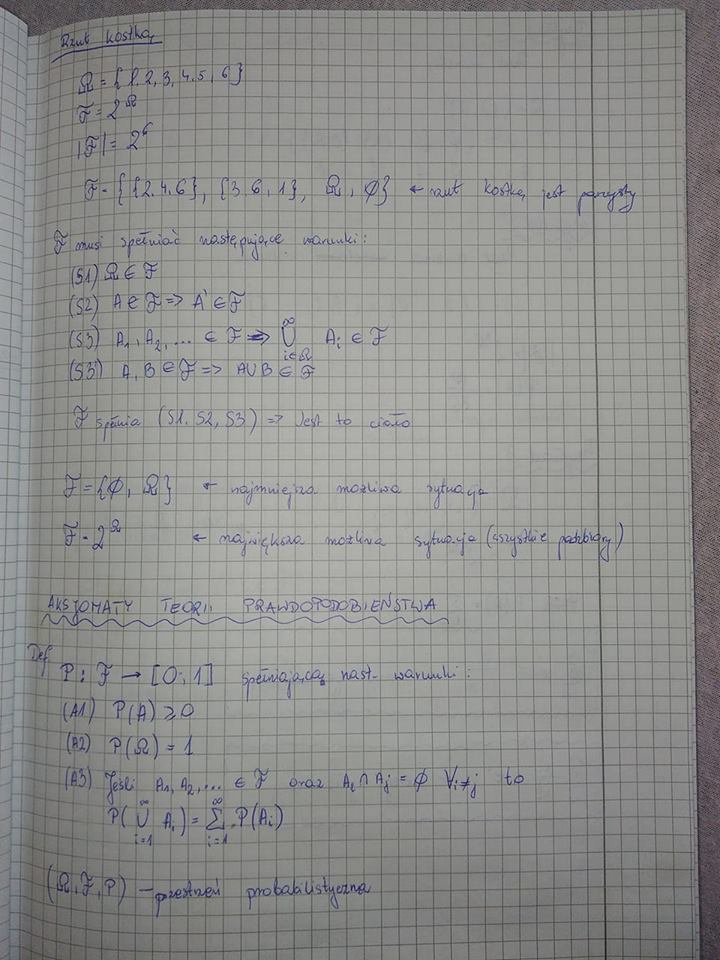 Rzut kostką
Ω = {1,2,3,4,5,6}
F = 2^Ω
|F| = 2^6
F = {{2,4,6}, {3,6,1}, Ω, ∅} ← rzut kostką jest parzysty
F musi spełniać następujące warunki:
(S1) Ω ∈ F
(S2) A ∈ F => A' ∈ F
(S3) A₁, A₂, ... ∈ F => ∞⋃i∈Ω Ai ∈ F
(S3') A, B ∈ F => A∪B ∈ F
F spełnia (S1, S2, S3) => Jest to ciało
F = {∅, Ω} ← najmniejsza możliwa sytuacja
F = 2^Ω ← największa możliwa sytuacja (wszystkie podzbiory)
AKSJOMATY TEORII PRAWDOPODOBIEŃSTWA
Def P : F → [0; 1] spełniającą nast. warunki:
(A1) P(A) ≥ 0
(A2) P(Ω) = 1
(A3) Jeśli A₁, A₂, ... ∈ F oraz Ai ∩ Aj = ∅ ∀i≠j to
P(∞⋃i=1 Ai) = ∞∑i=1 P(Ai)
(Ω, F, P) – przestrzeń probabilistyczna